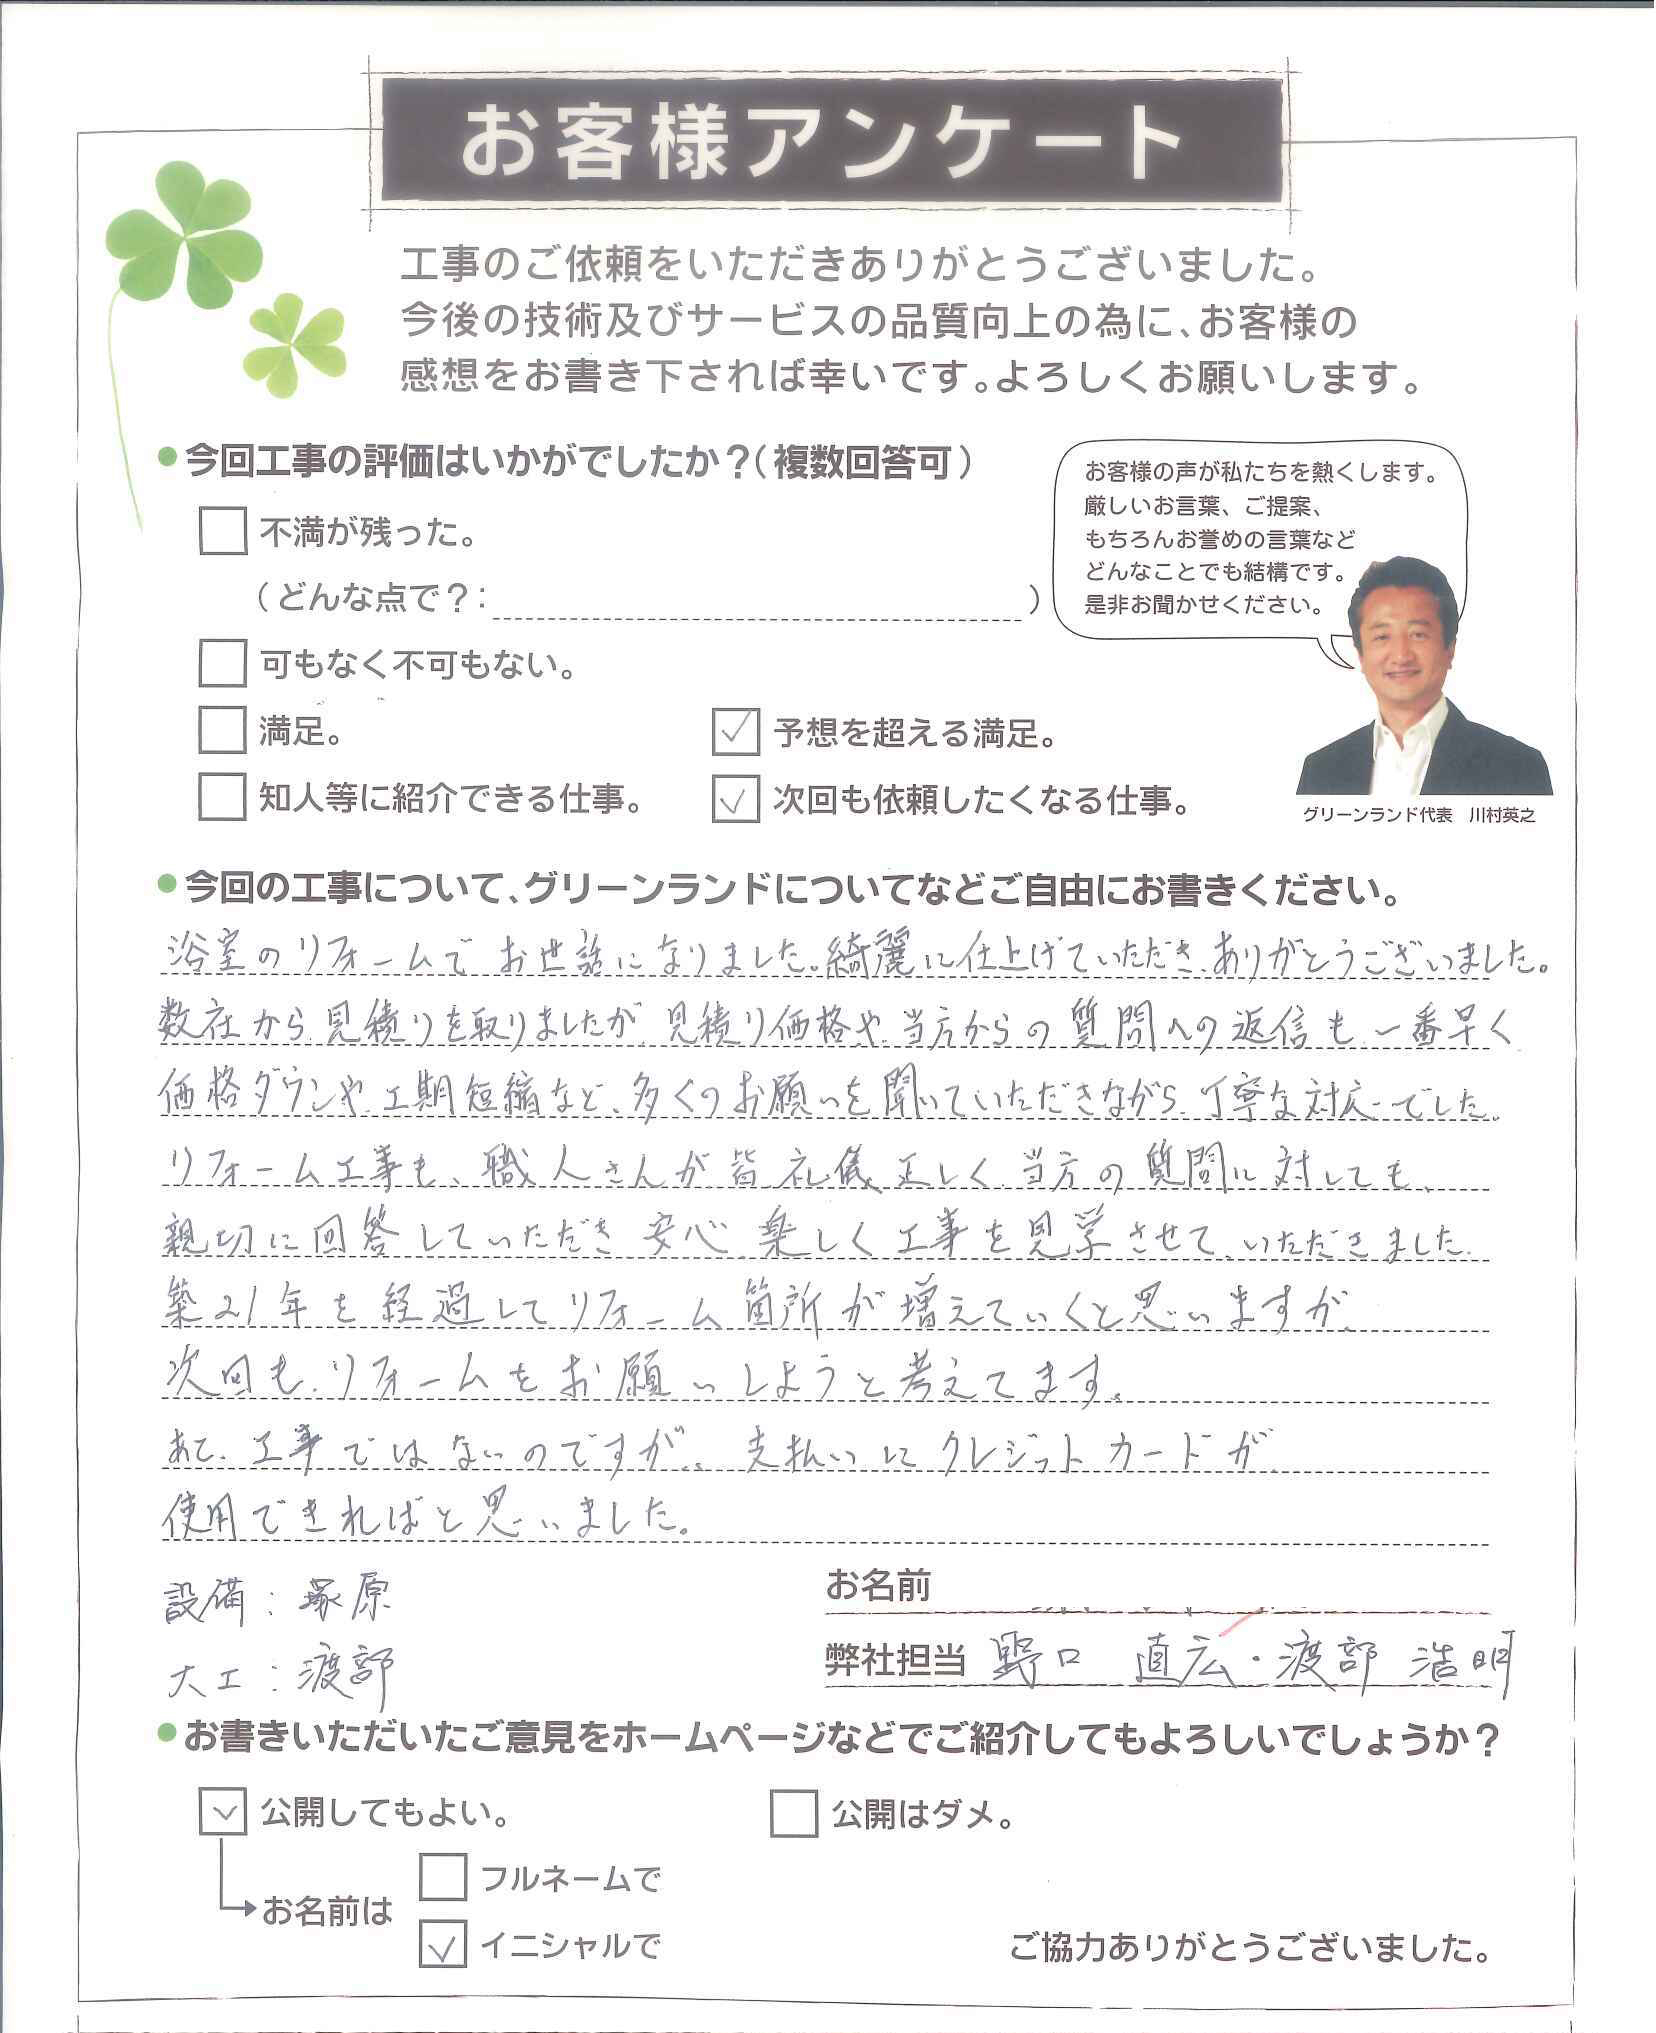 お客様アンケート
工事のご依頼をいただきありがとうございました。
今後の技術及びサービスの品質向上の為に、お客様の
感想をお書き下されば幸いです。よろしくお願いします。
●今回工事の評価はいかがでしたか?(複数回答可)
不満が残った。
(どんな点で?: )
可もなく不可もない。
満足。
✓ 予想を超える満足。
知人等に紹介できる仕事。
✓ 次回も依頼したくなる仕事。
お客様の声が私たちを熱くします。
厳しいお言葉、ご提案、
もちろんお誉めの言葉など
どんなことでも結構です。
是非お聞かせください。
グリーンランド代表 川村英之
●今回の工事について、グリーンランドについてなどご自由にお書きください。
浴室のリフォームでお世話になりました。綺麗に仕上げていただき、ありがとうございました。
数社から見積りを取りましたが、見積り価格や、当方からの質問への返信も、一番早く
価格ダウンや、工期短縮など、多くのお願いを聞いていただきながら、丁寧な対応でした。
リフォーム工事も、職人さんが皆礼儀正しく、当方の質問に対しても、
親切に回答していただき安心、楽しく工事を見学させて、いただきました。
築21年を経過してリフォーム箇所が増えていくと思いますが、
次回も、リフォームをお願いしようと考えてます。
あと、工事ではないのですが、支払いにクレジットカードが
使用できればと思いました。
設備:塚原
大工:渡部
お名前
弊社担当 野口 直広・渡部 浩明
●お書きいただいたご意見をホームページなどでご紹介してもよろしいでしょうか?
✓ 公開してもよい。
公開はダメ。
お名前は
フルネームで
✓ イニシャルで
ご協力ありがとうございました。